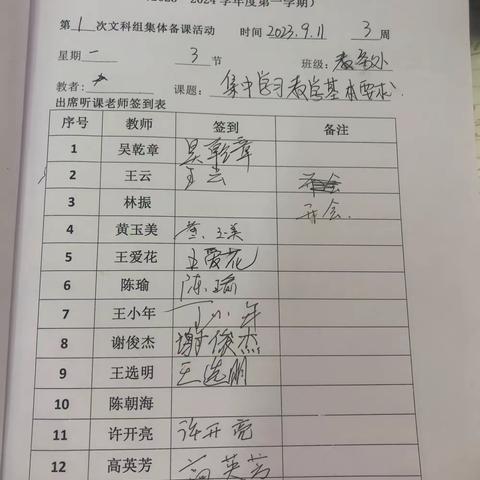 2024学年度第一学期）
第 1 次文科组集体备课活动 时间 2023.9.11 3 周
星期 一 3 节 班级: 教务处
教者: 课题: 集中学习教学基本要求.
出席听课老师签到表
序号 教师 签到 备注
1 吴乾章 吴乾章
2 王云 王云
3 林振 开会.
4 黄玉美 黄玉美
5 王爱花 王爱花
6 陈瑜 陈瑜
7 王小年 王小年
8 谢俊杰 谢俊杰
9 王选明 王选明
10 陈朝海
11 许开亮 许开亮
12 高英芳 高英芳